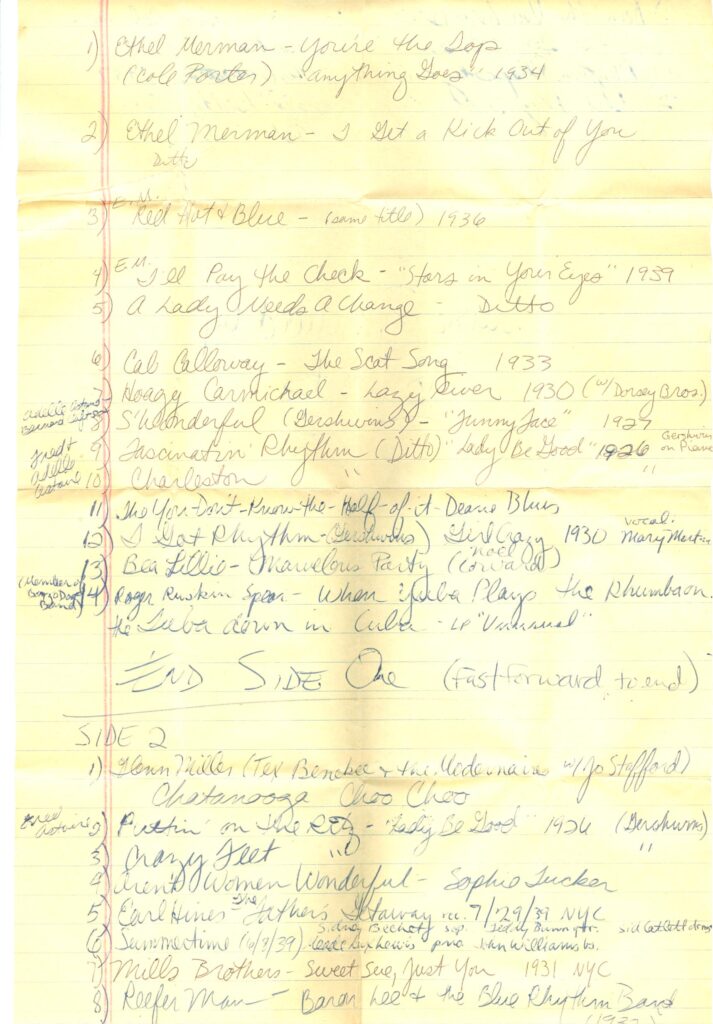 1) Ethel Merman - You're the Top
(Cole Porter) "Anything Goes" 1934
2) Ethel Merman - I Get a Kick Out of You
Ditto
E.M.
3) Red Hot & Blue - (same title) 1936
4) E.M. I'll Pay the Check - "Stars in Your Eyes" 1939
5) A Lady Needs A Change - Ditto
6) Cab Calloway - The Scat Song 1933
7) Hoagy Carmichael - Lazy River 1930 (w/Dorsey Bros.)
8) S'Wonderful (Gershwins) - "Funny Face" 1927
9) Fascinatin' Rhythm (Ditto) "Lady Be Good" 1926 Gershwin on Piano
Fred & Adelle Astaire
10) Charleston " "
11 The You-Don't-Know-the-Half-of-it-Dearie Blues
12) I Got Rhythm - (Gershwins) Girl Crazy 1930 vocal: Mary Martin
13) Bea Lillie - Marvelous Party (Noel Coward)
(Member of Bonzo Dog Band)
14) Roger Ruskin Spear - When Yuba Plays the Rhumba on
the Tuba down in Cuba - LP "Unusual"
END SIDE One (Fast-forward to end)
SIDE 2
1) Glenn Miller (Tex Beneke & the Modernaires w/ Jo Stafford)
Chatanooga Choo Choo
Fred Astaire
2) Puttin' on the Ritz - "Lady Be Good" 1926 (Gershwins)
3) Crazy Feet " "
4 Aren't Women Wonderful - Sophie Tucker
5) Earl Hines - The Father's Getaway rec. 7/29/39 NYC
6) Summertime (6/8/39) Sidney Bechet sop. Teddy Bunn gtr. Sid Catlett drms
Meade Lux Lewis pno John Williams bs.
7) Mills Brothers - Sweet Sue, Just You 1931 NYC
8) Reefer Man - Baron Lee & the Blue Rhythm Band